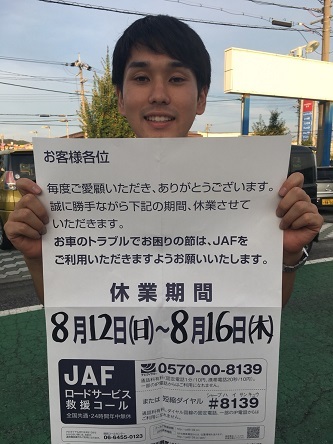 お客様各位
毎度ご愛顧いただき、ありがとうございます。
誠に勝手ながら下記の期間、休業させて
いただきます。
お車のトラブルでお困りの節は、JAFを
ご利用いただきますようお願いいたします。
休業期間
8月12日(日)～8月16日(木)
JAF
ロードサービス
救援コール
全国共通・24時間年中無休
0570-00-8139
または 短縮ダイヤル
#8139
06-6455-0123